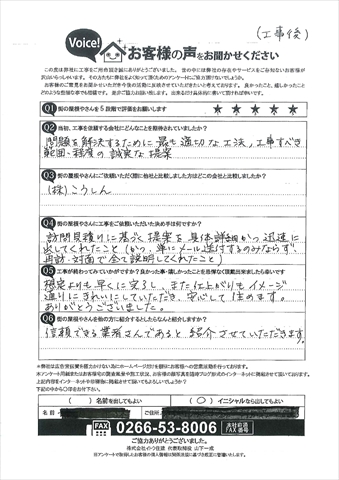 (工事後)
Voice!
お客様の声をお聞かせください
Q1 街の屋根やさんを5段階で評価をお願いします ★ ★ ★ ★ ★
Q2 当初、工事を依頼する会社にどんなことを期待されていましたか?
問題を解決するために最も適切な工法、工事すべき
範囲・程度の誠実な提案
Q3 街の屋根やさんにご依頼いただく際に他社と比較しました方はどこの会社と比較しましたか?
(株)こうしん
Q4 街の屋根やさんにご依頼いただいた決め手は何ですか?
訪問見積りに基づく提案を具体詳細かつ迅速に
出してくれたこと(かつ、単にメール送付するのみならず、
再訪・対面で全て説明してくれたこと)
Q5 工事が終わってみていかがですか?良かった事・嬉しかったことを忌憚なく頂戴出来ましたら幸いです
想定よりも早くに完了し、また仕上がりもイメージ
通りにきれいにしていただき、安心して住めます。
ありがとうございました。
Q6 街の屋根やさんを他の方に紹介するとしたらなんと紹介しますか?
信頼できる業者さんであると紹介させていただきます。
下記の中から○印をお付け下さい。
( ) 名前を出してもよい (○) イニシャルなら出してもよい
名前: ご住所:
FAX 0266-53-8006 本社直通 FAX番号
ご協力ありがとうございました。
株式会社イトウ住建 代表取締役 山下一成